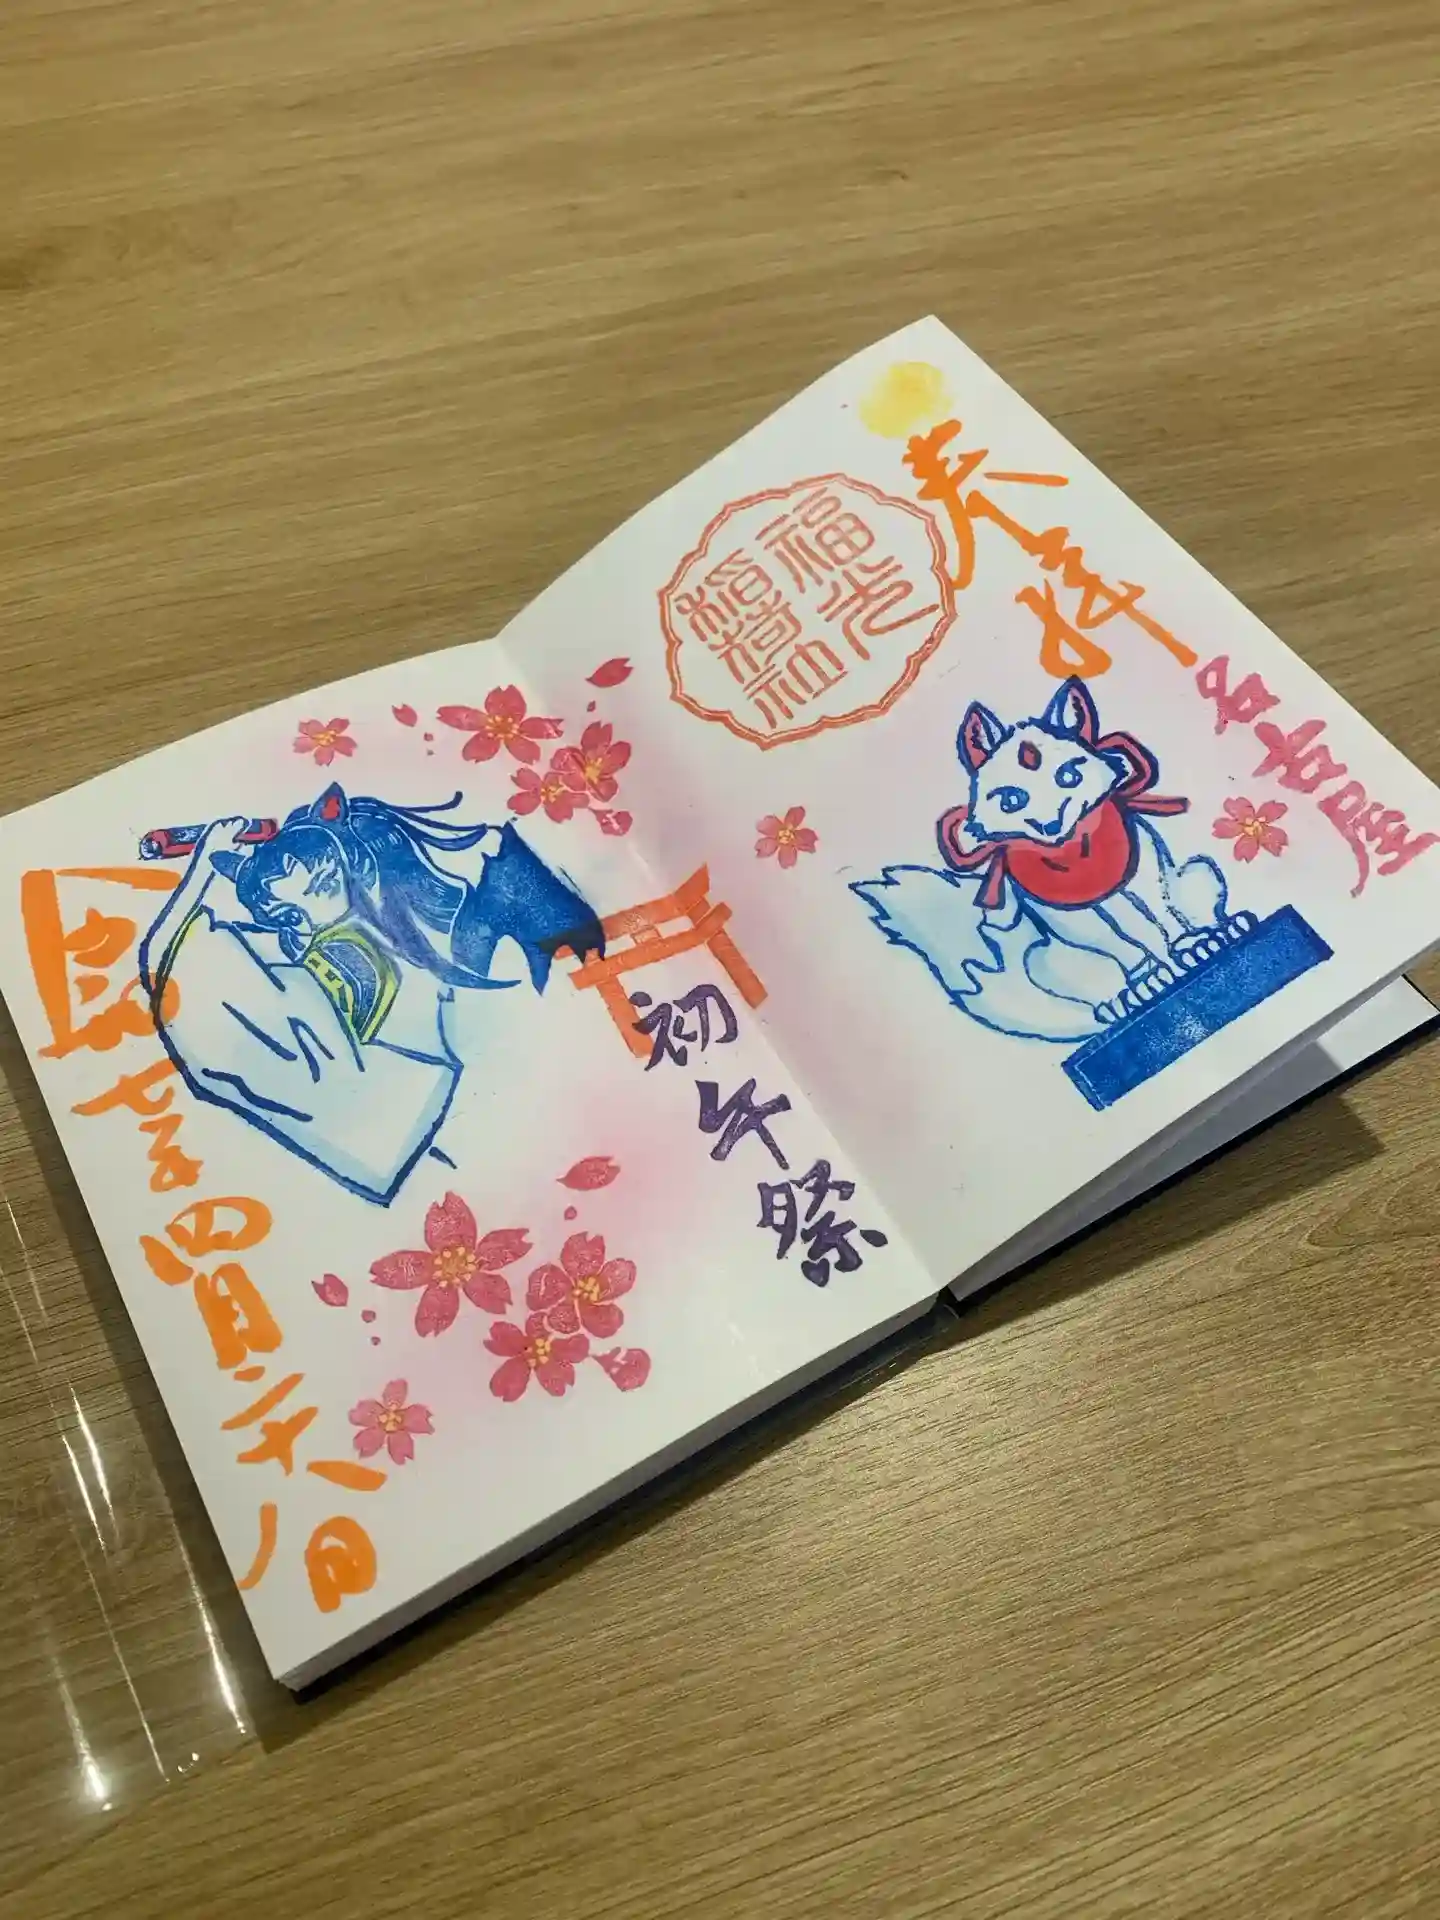 奉拝
名古屋
福光
稲荷社
初午祭
七年四月二十八日